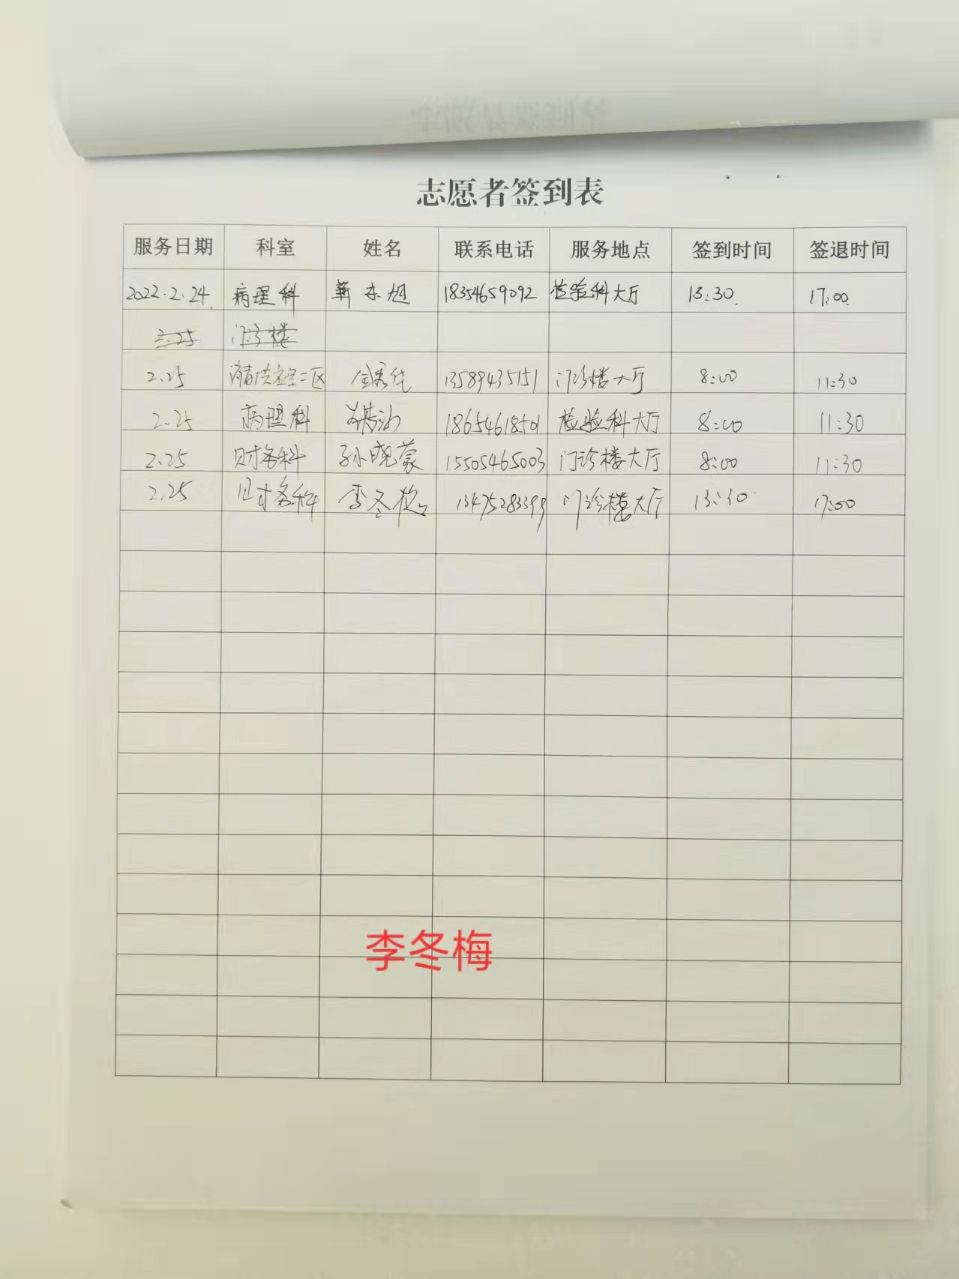 志愿者签到表
服务日期 科室 姓名 联系电话 服务地点 签到时间 签退时间
2022.2.24 病理科 18354659092 检验科大厅 13:30 17:00
2.25 门诊楼
2.25 13589435151 门诊楼大厅 8:00 11:30
2.25 病理科 18654618501 检验科大厅 8:00 11:30
2.25 财务科 孙晓蒙 15505465003 门诊楼大厅 8:00 11:30
2.25 财务科 李冬梅 13475283399 门诊楼大厅 13:30 17:00
李冬梅